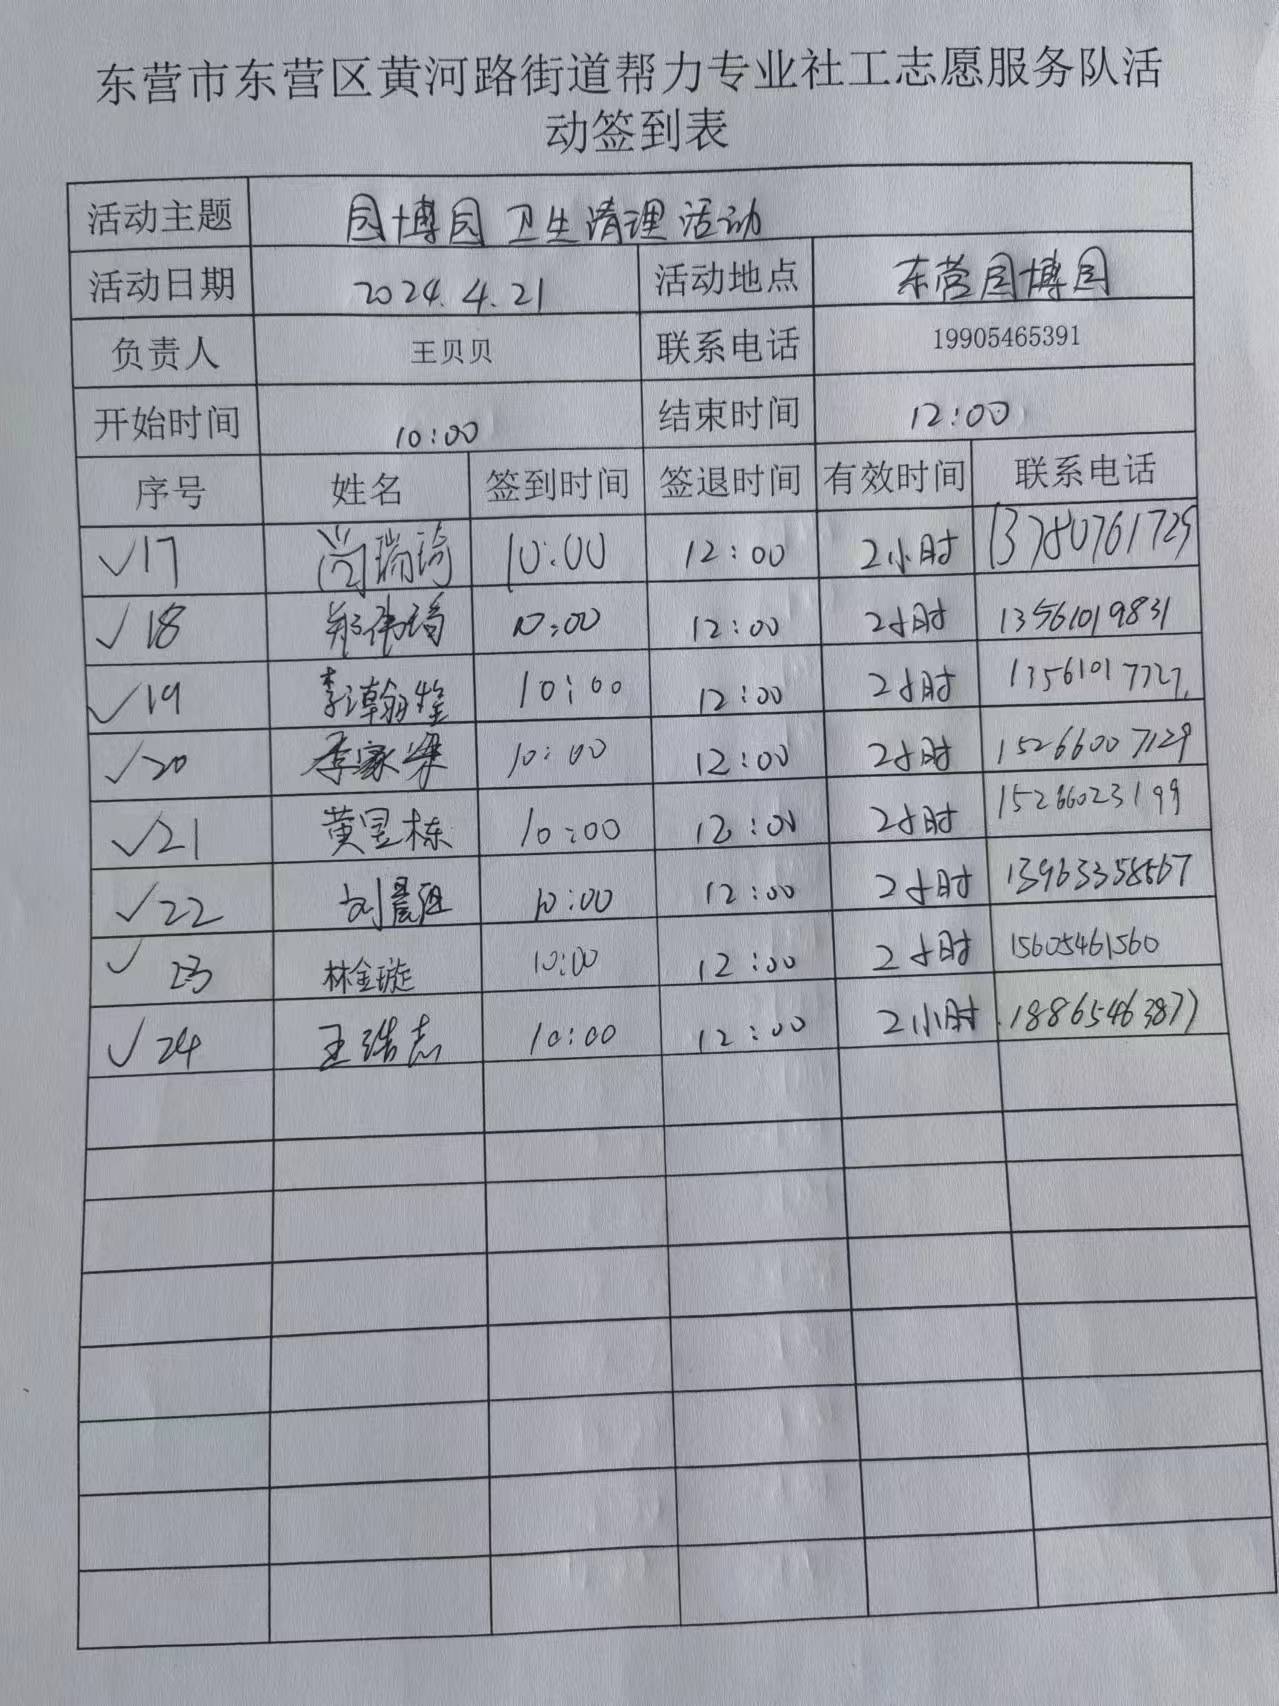 东营市东营区黄河路街道帮力专业社工志愿服务队活
动签到表
活动主题 园博园卫生清理活动
活动日期 2024.4.21 活动地点 东营园博园
负责人 王贝贝 联系电话 19905465391
开始时间 10:00 结束时间 12:00
序号 姓名 签到时间 签退时间 有效时间 联系电话
✓17 尚瑞琦 10:00 12:00 2小时 13780761725
✓18 郑伟琦 10:00 12:00 2小时 13561019831
✓19 李瀚煌 10:00 12:00 2小时 13561017727
✓20 李家梁 10:00 12:00 2小时 15266007129
✓21 黄昱栋 10:00 12:00 2小时 15266023199
✓22 刘晨 10:00 12:00 2小时 13963358567
✓23 林金璇 10:00 12:00 2小时 15605461560
✓24 王浩志 10:00 12:00 2小时 18865463877